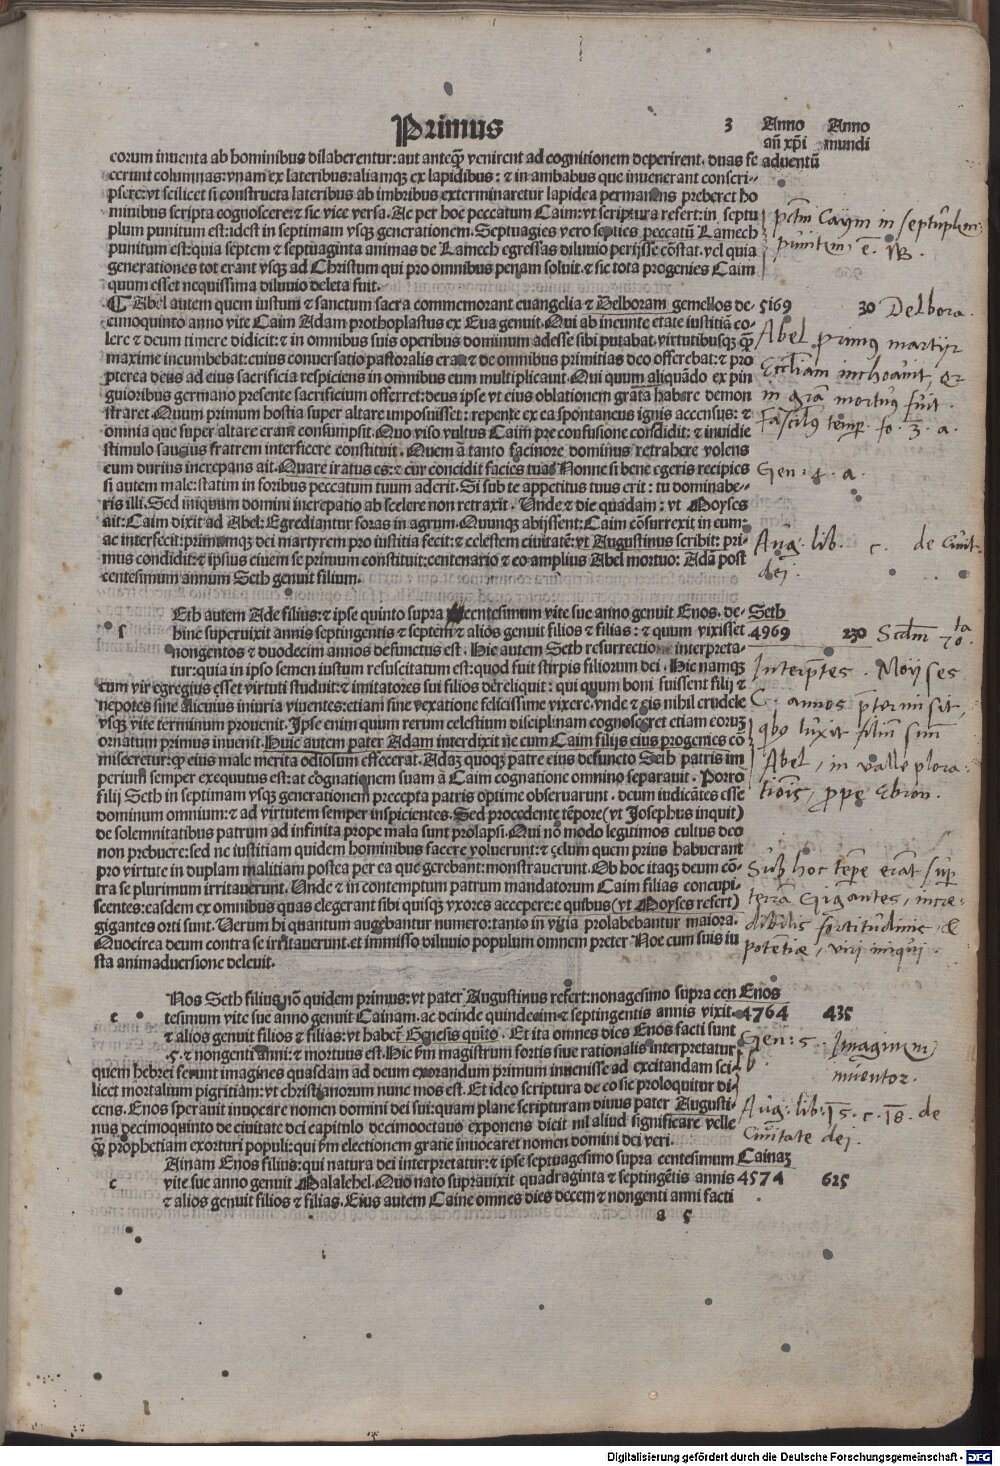 Primus
3
Anno Anno
añ xp̄i mundi
adventũ
corum inuenta ab hominibus dilaberentur: aut anteq̃ venirent ad cognitionem deperirent. duas fe
cerunt columnas: vnam ex lateribus: aliamqꝫ ex lapidibus: ⁊ in ambabus que inuenerant conscri-
psere: vt scilicet si constructa lateribus ab imbribus exterminaretur lapidea permanens preberet ho
minibus scripta cognoscere: ⁊ sic vice versa. Ac per hoc peccatum Caim: vt scriptura refert: in septu
plum punitum est: idest in septimam vsqꝫ generationem. Septuagies vero septies peccatũ Lamech
punitum est: quia septem ⁊ septuaginta animas de Lamech egressas diluuio perijsse cõstat. vel quia
generationes tot erant vsqꝫ ad Christum qui pro omnibus penam soluit. ⁊ sic tota progenies Caim
quum esset nequissima diluuio deleta fuit.
¶ Abel autem quem iustum ⁊ sanctum sacra commemorant euangelia ⁊ Delboram gemellos de-
cimoquinto anno vite Caim Adam prothoplastus ex Eua genuit. Qui ab ineunte etate iustitiã co-
lere ⁊ deum timere didicit: ⁊ in omnibus suis operibus dominum adesse sibi putabat. virtutibusqꝫ q̃
maxime incumbebat: cuius conuersatio pastoralis erat: ⁊ de omnibus primitias deo offerebat: ⁊ pro
pterea deus ad eius sacrificia respiciens in omnibus eum multiplicauit. Qui quum aliquãdo ex pin
guioribus germano presente sacrificium offerret: deus ipse vt eius oblationem gratã habere demon
straret Quum primum hostia super altare imposuisset: repente ex ea spontaneus ignis accensus: ⁊
omnia que super altare erant consumpsit. Quo viso vultus Caim pre confusione concidit: ⁊ inuidie
stimulo saucius fratrem interficere constituit. Quem a tanto facinore dominus retrahere volens
eum durius increpans ait. Quare iratus es: ⁊ cur concidit facies tua? Nonne si bene egeris recipies
si autem male: statim in foribus peccatum tuum aderit. Si sub te appetitus tuus erit: tu dominabe-
ris illi. Sed iniquum domini increpatio ab scelere non retraxit. Unde ⁊ die quadam: vt Moyses
ait: Caim dixit ad Abel: Egrediantur foras in agrum. Quumqꝫ abijssent: Caim cõsurrexit in eum:
ac interfecit: primumqꝫ dei martyrem pro iustitia fecit: ⁊ celestem ciuitatẽ: vt Augustinus scribit: pri-
mus condidit: ⁊ ipsius ciuem se primum constituit: centenario ⁊ eo amplius Abel mortuo: Adã post
centesimum annum Seth genuit filium.
5169 30
Delbora.
pctm̄ Caym in septuplum
punitum ē.
Abel primus martyr
Eccl'iam inchoauit, et
in gr̃a mortuus fuit.
Fascicul' temp. fo. 3. a.
Gen. 4. a.
Aug. lib. c. de Ciuit.
dei.
s
Eth autem Ade filius: ⁊ ipse quinto supra centesimum vite sue anno genuit Enos. de-
hinc superuixit annis septingentis ⁊ septem ⁊ alios genuit filios ⁊ filias: ⁊ quum vixisset
nongentos ⁊ duodecim annos defunctus est. Hic autem Seth resurrectio interpreta-
tur: quia in ipso semen iustum resuscitatum est: quod fuit stirpis filiorum dei. Hic namqꝫ
cum vir egregius esset virtuti studuit: ⁊ imitatores sui filios dereliquit: qui quum boni fuissent filij ⁊
nepotes sine alicuius iniuria viuentes: etiam sine vexatione felicissime vixere. vnde ⁊ eis nihil crudele
vsqꝫ vite terminum prouenit. Ipse enim quum rerum celestium disciplinam cognosceret etiam eorum
ornatum primus inuenit. Huic autem pater Adam interdixit ne cum Caim filijs eius progenies cõ
misceretur: qꝫ eius male merita odiosum effecerat. Adaqꝫ quoqꝫ patre eius defuncto Seth patris im
perium semper exequutus est: at cognationem suam a Caim cognatione omnino separauit. Porro
filij Seth in septimam vsqꝫ generationem precepta patris optime obseruarunt. deum iudicãtes esse
dominum omnium: ⁊ ad virtutem semper inspicientes. Sed procedente tẽpore (vt Josephus inquit)
de solemnitatibus patrum ad infinita prope mala sunt prolapsi. Qui nõ modo legitimos cultus deo
non prebuere: sed ne iustitiam quidem hominibus facere voluerunt: ⁊ zelum quem prius habuerant
pro virtute in duplam malitiam postea per ea que gerebant: monstrauerunt. Ob hoc itaqꝫ deum cõ-
tra se plurimum irritauerunt. Unde ⁊ in contemptum patrum mandatorum Caim filias concupi-
scentes: easdem ex omnibus quas elegerant sibi quisqꝫ vxores accepere: e quibus (vt Moyses refert)
gigantes orti sunt. Uerum hi quantum augebantur numero: tanto in vitia prolabebantur maiora.
Quocirca deum contra se irritauerunt. et immisso diluuio populum omnem preter Noe cum suis iu
sta animaduersione deleuit.
Seth
4969 230
Scdm̄ 70ta
Interp̃tes. Moyses
C. annos p̃termisit,
qbꝰ luxit filiũ suũ
Abel, in valle plora-
tiõis, prope Ebron.
Sub hoc tẽpe erãt sup
terrã Gigantes, incre-
dibilis fortitudinis, &
potentiæ, viri iniqui.
e
Nos Seth filius nõ quidem primus: vt pater Augustinus refert: nonagesimo supra cen
tesimum vite sue anno genuit Cainam. ac deinde quindecim ⁊ septingentis annis vixit.
⁊ alios genuit filios ⁊ filias: vt habet̃ Genesis quito. Et ita omnes dies Enos facti sunt
.5. ⁊ nongenti anni: ⁊ mortuus est. Hic fm̃ magistrum fortis siue rationalis interpretatur
quem hebrei ferunt imagines quasdam ad deum exorandum primum inuenisse ad excitandam sci
licet mortalium pigritiam: vt christianorum nunc mos est. Et ideo scriptura de eo sic proloquitur di-
cens. Enos sperauit inuocare nomen domini dei sui: quam plane scripturam diuus pater Augusti-
nus decimoquinto de ciuitate dei capitulo decimooctauo exponens dicit nil aliud significare velle
q̃ prophetiam exorturi populi: qui fm̃ electionem gratie inuocaret nomen domini dei veri.
Enos
4764 435
Gen: 5.
b
Imaginum
inuentor.
Aug: lib: 15. c. 18. de
Ciuitate dei.
c
Ainam Enos filius: qui natura dei interpretatur: ⁊ ipse septuagesimo supra centesimum
vite sue anno genuit Malalehel. Quo nato supravixit quadraginta ⁊ septingẽtis annis
⁊ alios genuit filios ⁊ filias. Eius autem Caine omnes dies decem ⁊ nongenti anni facti
Cainaꝫ
4574 625
a 5
Digitalisierung gefördert durch die Deutsche Forschungsgemeinschaft - DFG